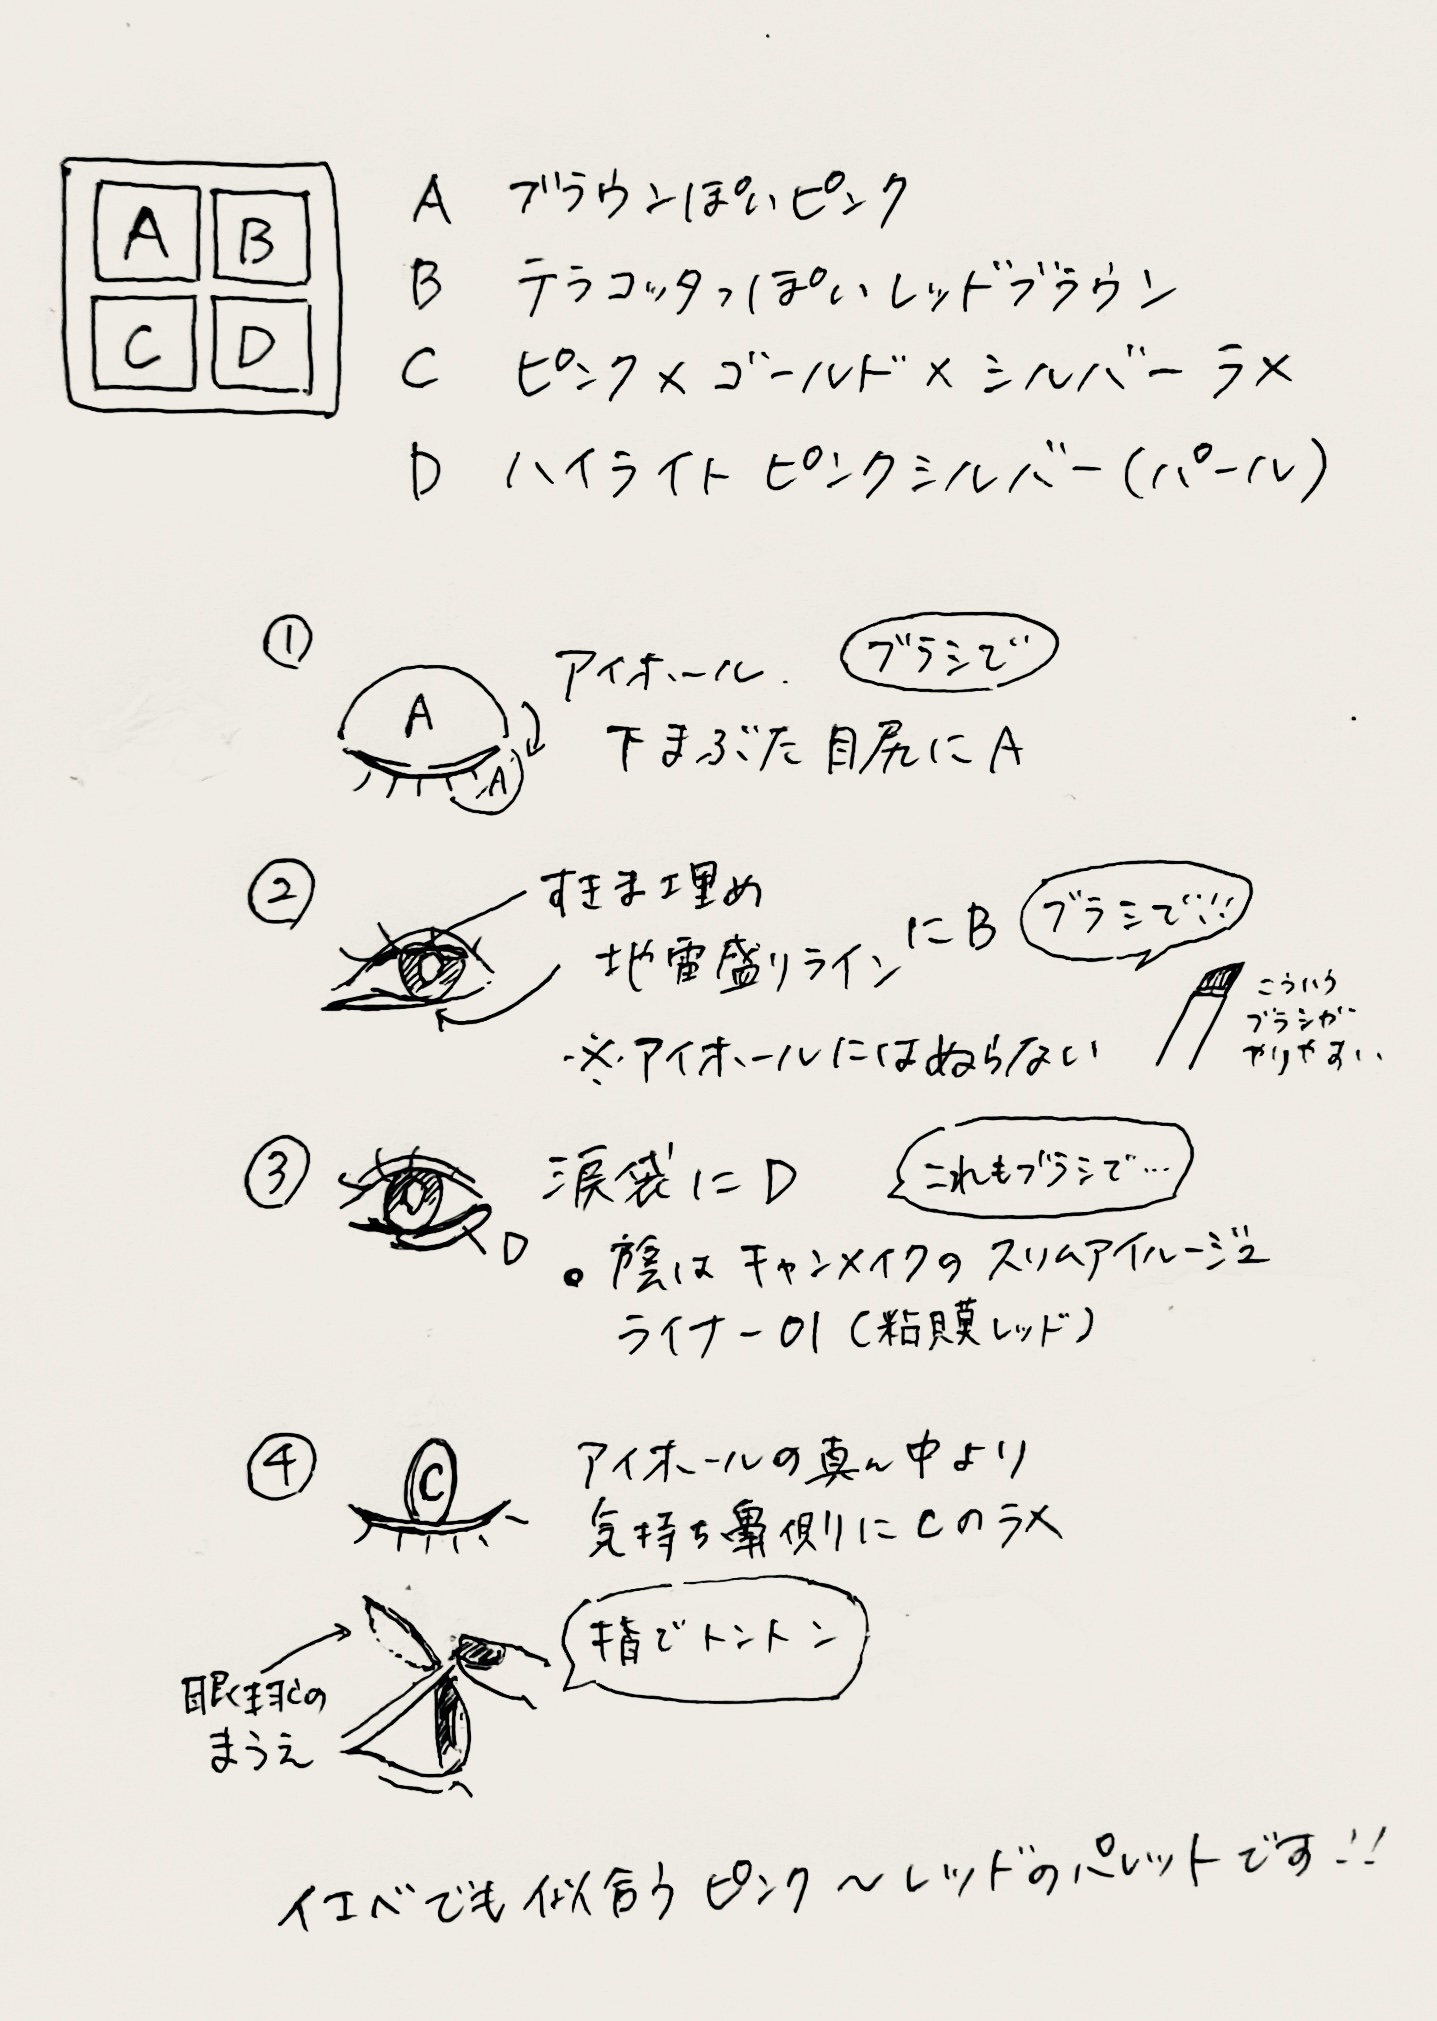 A B
C D
A ブラウンぽいピンク
B テラコッタっぽいレッドブラウン
C ピンク×ゴールド×シルバーラメ
D ハイライト ピンクシルバー(パール)
①
A
A
アイホール.
ブラシで
下まぶた目尻にA
②
すきま埋め
地雷盛りライン
にB
ブラシで!!
こういう
ブラシが
やりやすい
※アイホールにはぬらない
③
D
涙袋にD
これもブラシで…
•陰はキャンメイクのスリムアイルージュ
ライナー01(粘膜レッド)
④
C
アイホールの真ん中より
気持ち鼻側にCのラメ
指でトントン
眼球の
まうえ
イエベでも似合うピンク〜レッドのパレットです!!